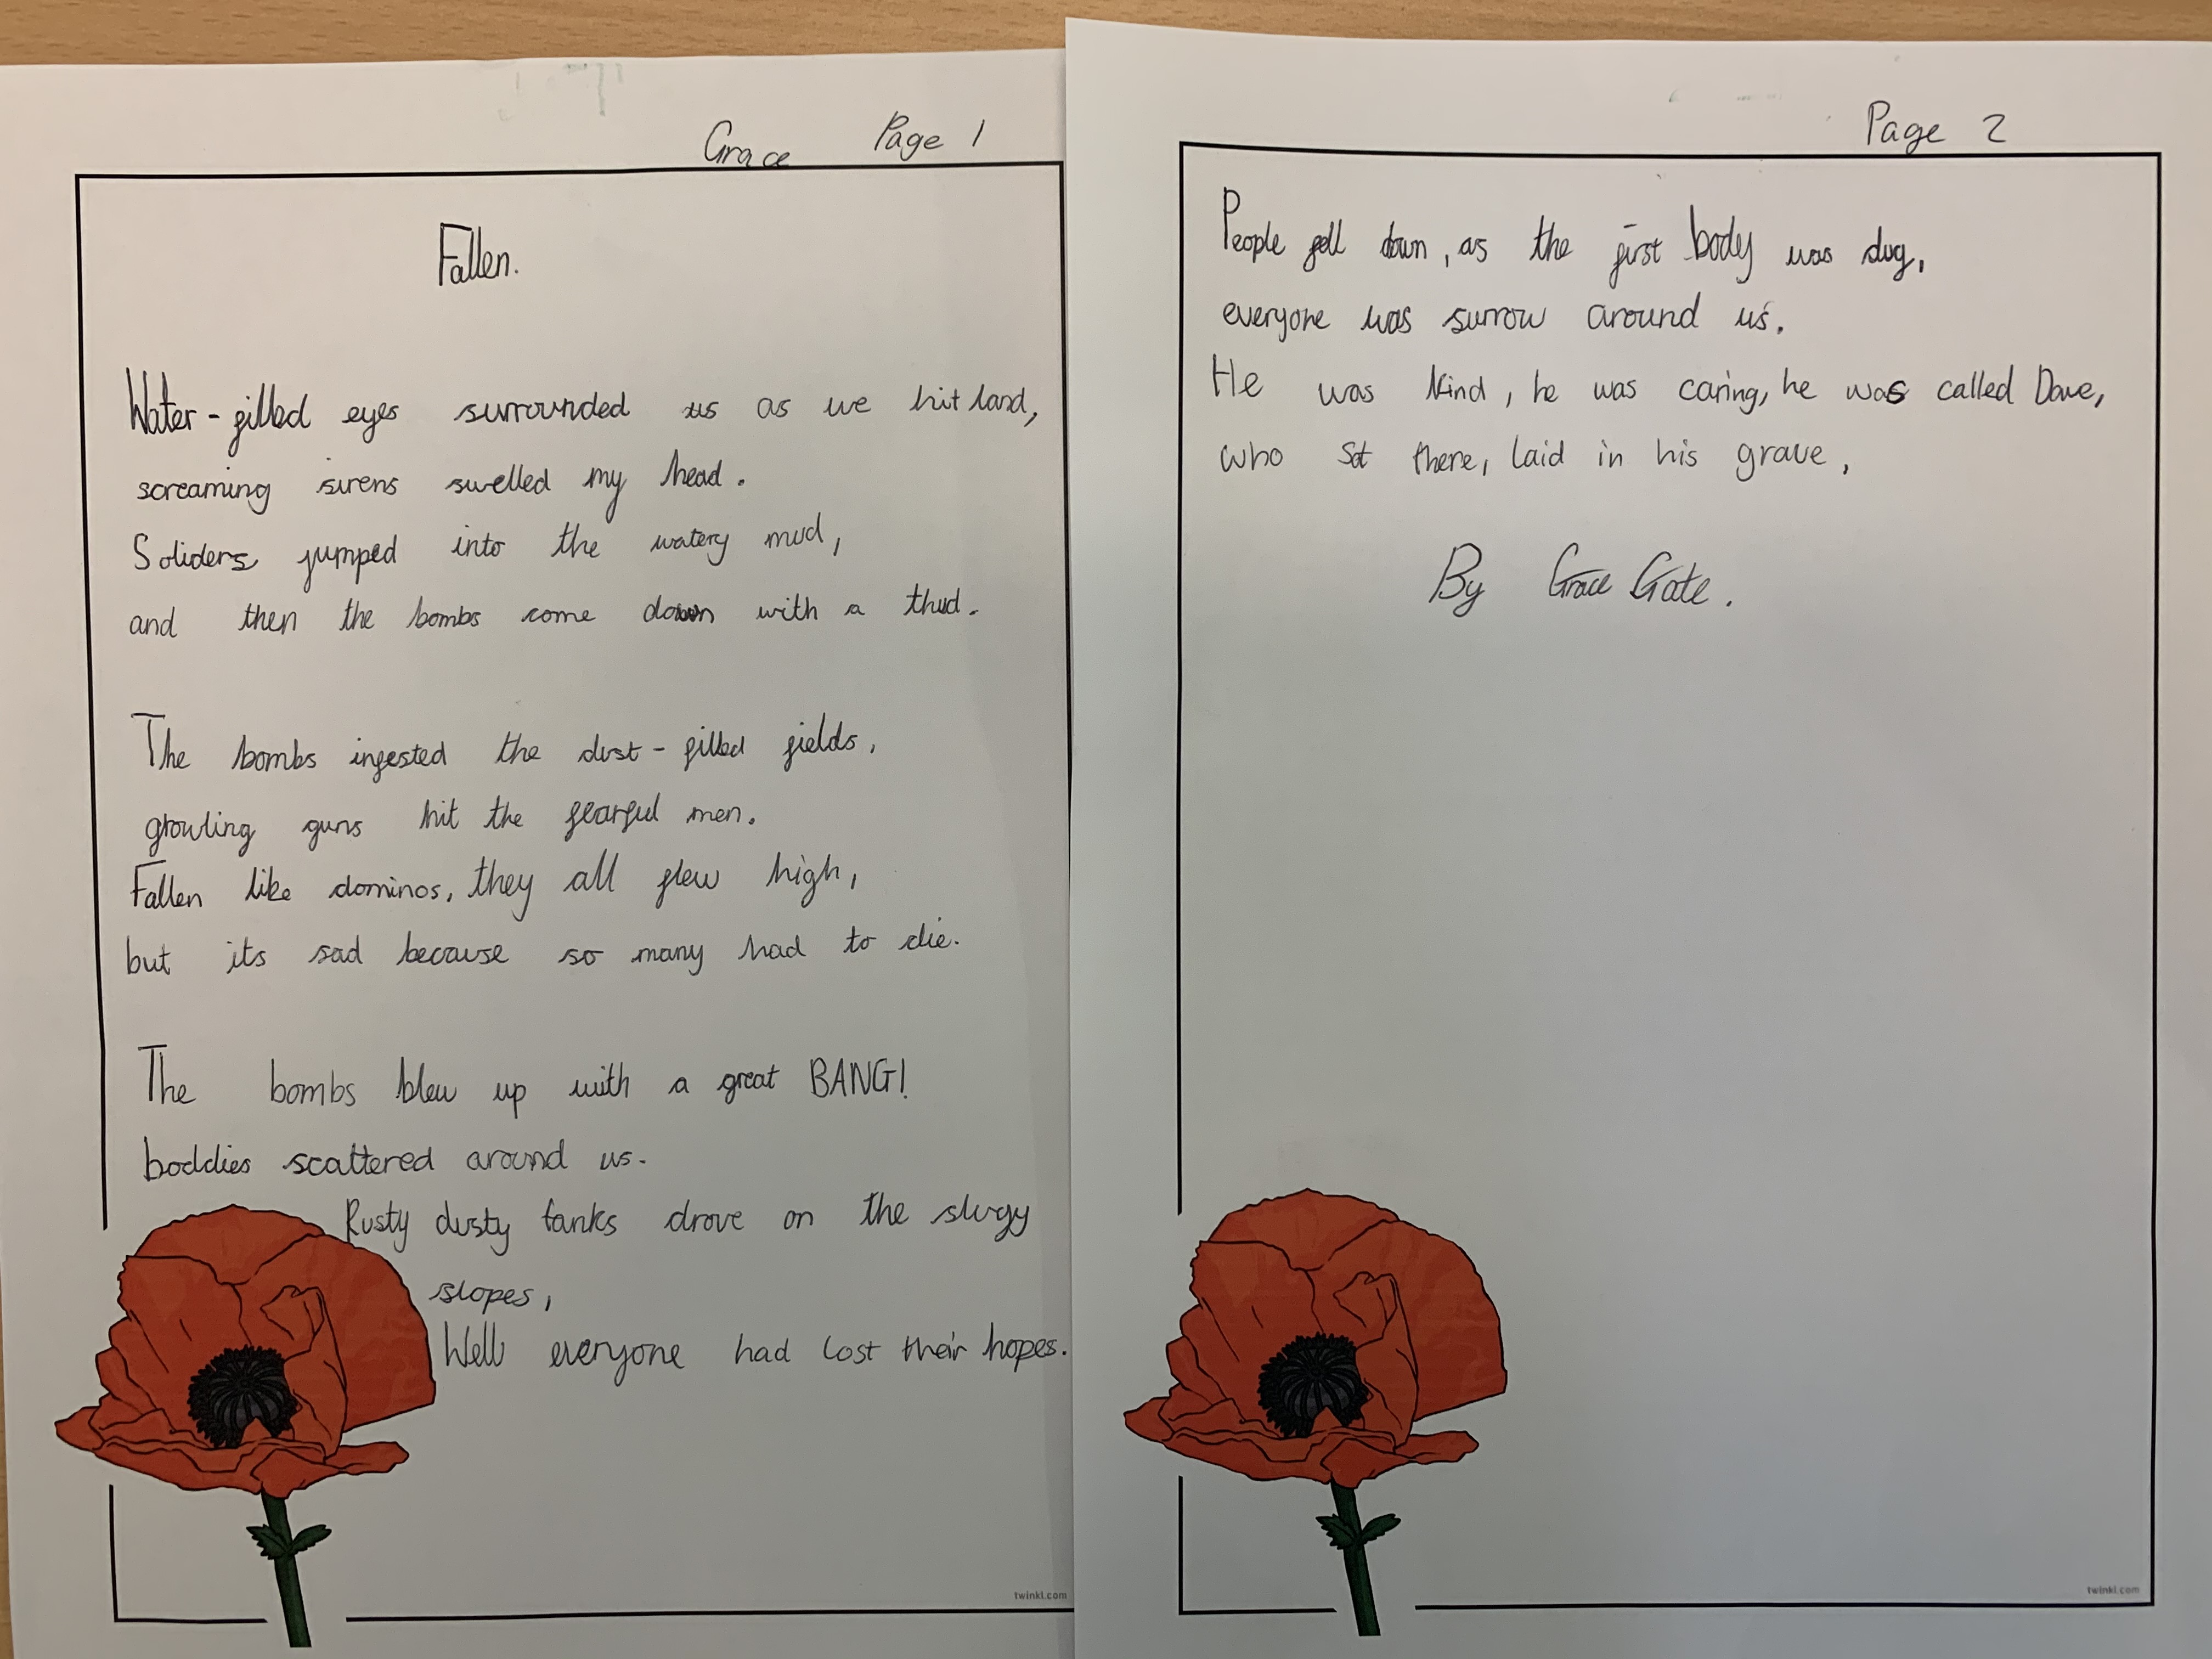 Grace Page 1
Fallen.
Water-filled eyes surrounded us as we hit land,
screaming sirens swelled my head.
Soliders jumped into the watery mud,
and then the bombs come down with a thud.
The bombs infested the dust-filled fields,
growling guns hit the fearful men.
Fallen like dominos, they all flew high,
but its sad because so many had to die.
The bombs blew up with a great BANG!
boddies scattered around us.
Rusty dusty tanks drove on the slugy
slopes,
Well everyone had lost their hopes.
twinkl.com
Page 2
People fell down, as the first body was dug,
everyone was surrow around us.
He was kind, he was caring, he was called Dave,
who sat there, laid in his grave,
By Grace Gate.
twinkl.com